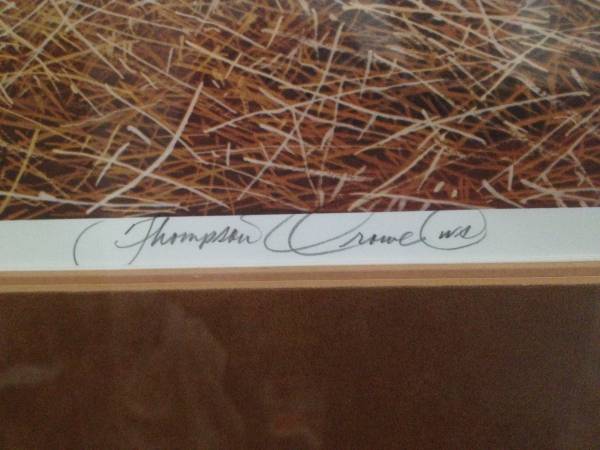 Thompson Crowe ws